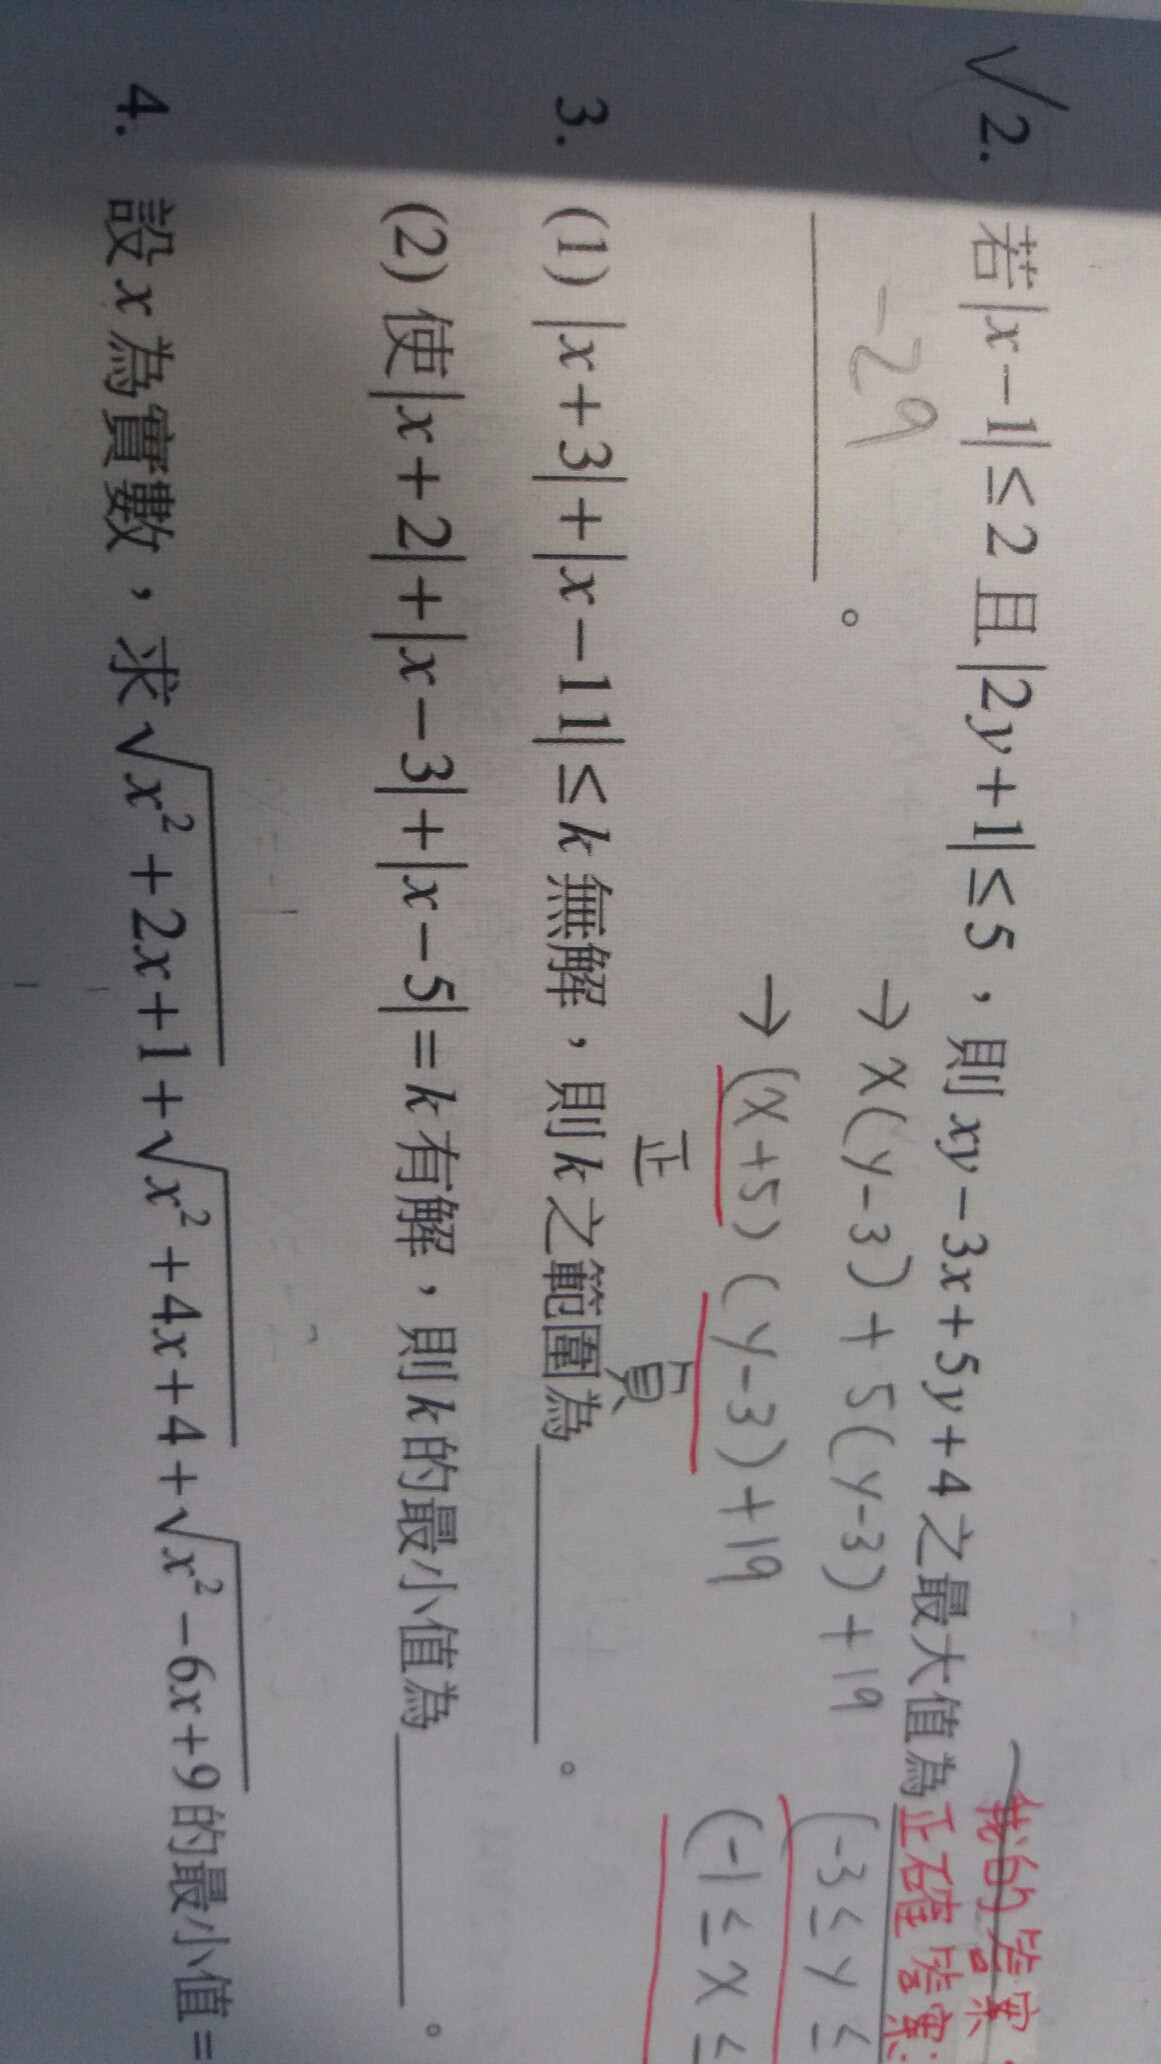 √2. 若|x-1|≤2且|2y+1|≤5，則xy-3x+5y+4之最大值為
我的答案
正確答案:
-29
。
→ x(y-3)+5(y-3)+19
(-3≤y≤
→ (x+5)(y-3)+19
(-1≤x≤
正 負
3. (1) |x+3|+|x-11|≤k無解，則k之範圍為＿＿＿。
(2) 使|x+2|+|x-3|+|x-5|=k有解，則k的最小值為＿＿＿。
4. 設x為實數，求√x²+2x+1+√x²+4x+4+√x²-6x+9的最小值=